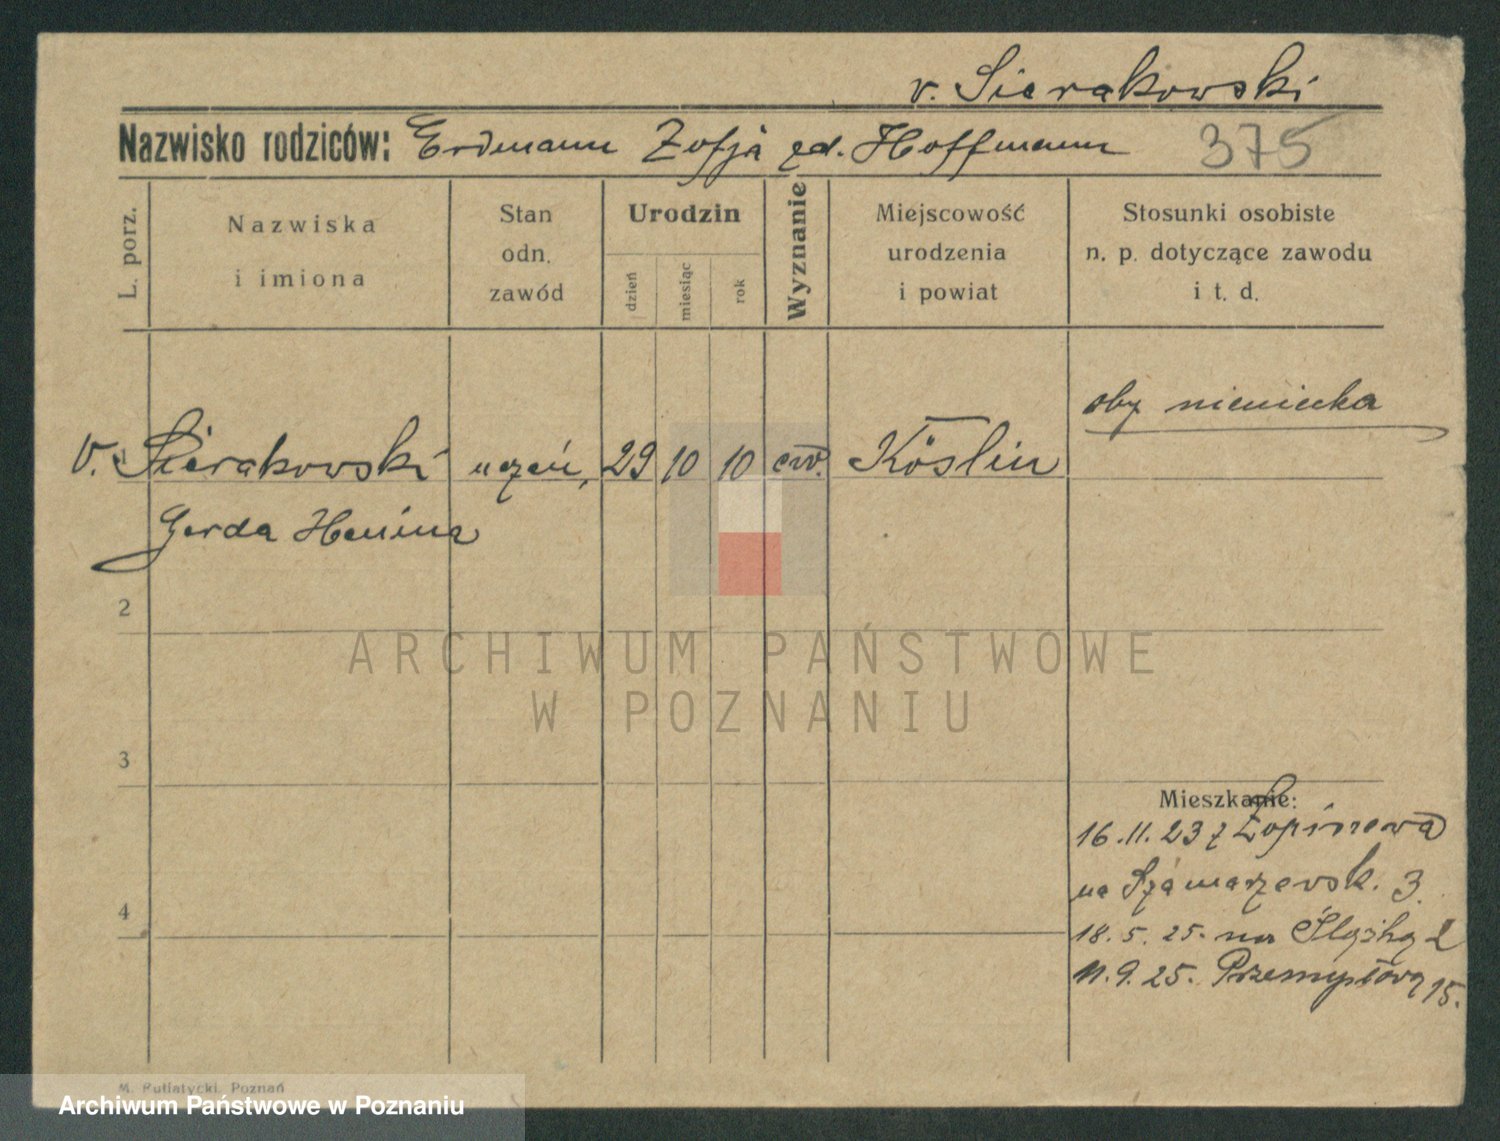 v. Sierakowski
Nazwisko rodziców: Erdmann Zofja zd. Hoffmann 375
L. porz.
Nazwiska
i imiona
Stan
odn.
zawód
Urodzin
dzień
miesiąc
rok
Wyznanie
Miejscowość
urodzenia
i powiat
Stosunki osobiste
n. p. dotyczące zawodu
i t. d.
oby niemiecka
v. Sierakowski uczeń, 29 10 10 ew. Köslin
Gerda Henina
2
3
4
Mieszkanie:
16.11.23 z
na Szamarzewsk. 3.
18.5.25. na Śląską 2
11.9.25. Przemysłową 15.
ARCHIWUM PAŃSTWOWE
W POZNANIU
M. Putiatycki, Poznań
Archiwum Państwowe w Poznaniu